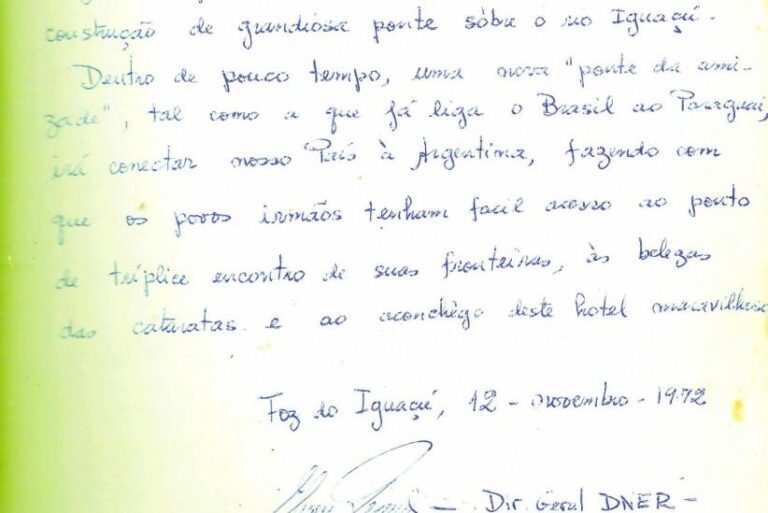 construção de grandiosa ponte sôbre o rio Iguaçú.
Dentro de pouco tempo, uma nova "ponte da ami-
zade", tal como a que já liga o Brasil ao Paraguai,
irá conectar nosso País à Argentina, fazendo com
que os povos irmãos tenham facil acesso ao ponto
de tríplice encontro de suas fronteiras, às belezas
das cataratas e ao aconchêgo deste hotel maravilhoso
Foz do Iguaçú, 12 - novembro - 1972
— Dir. Geral DNER -